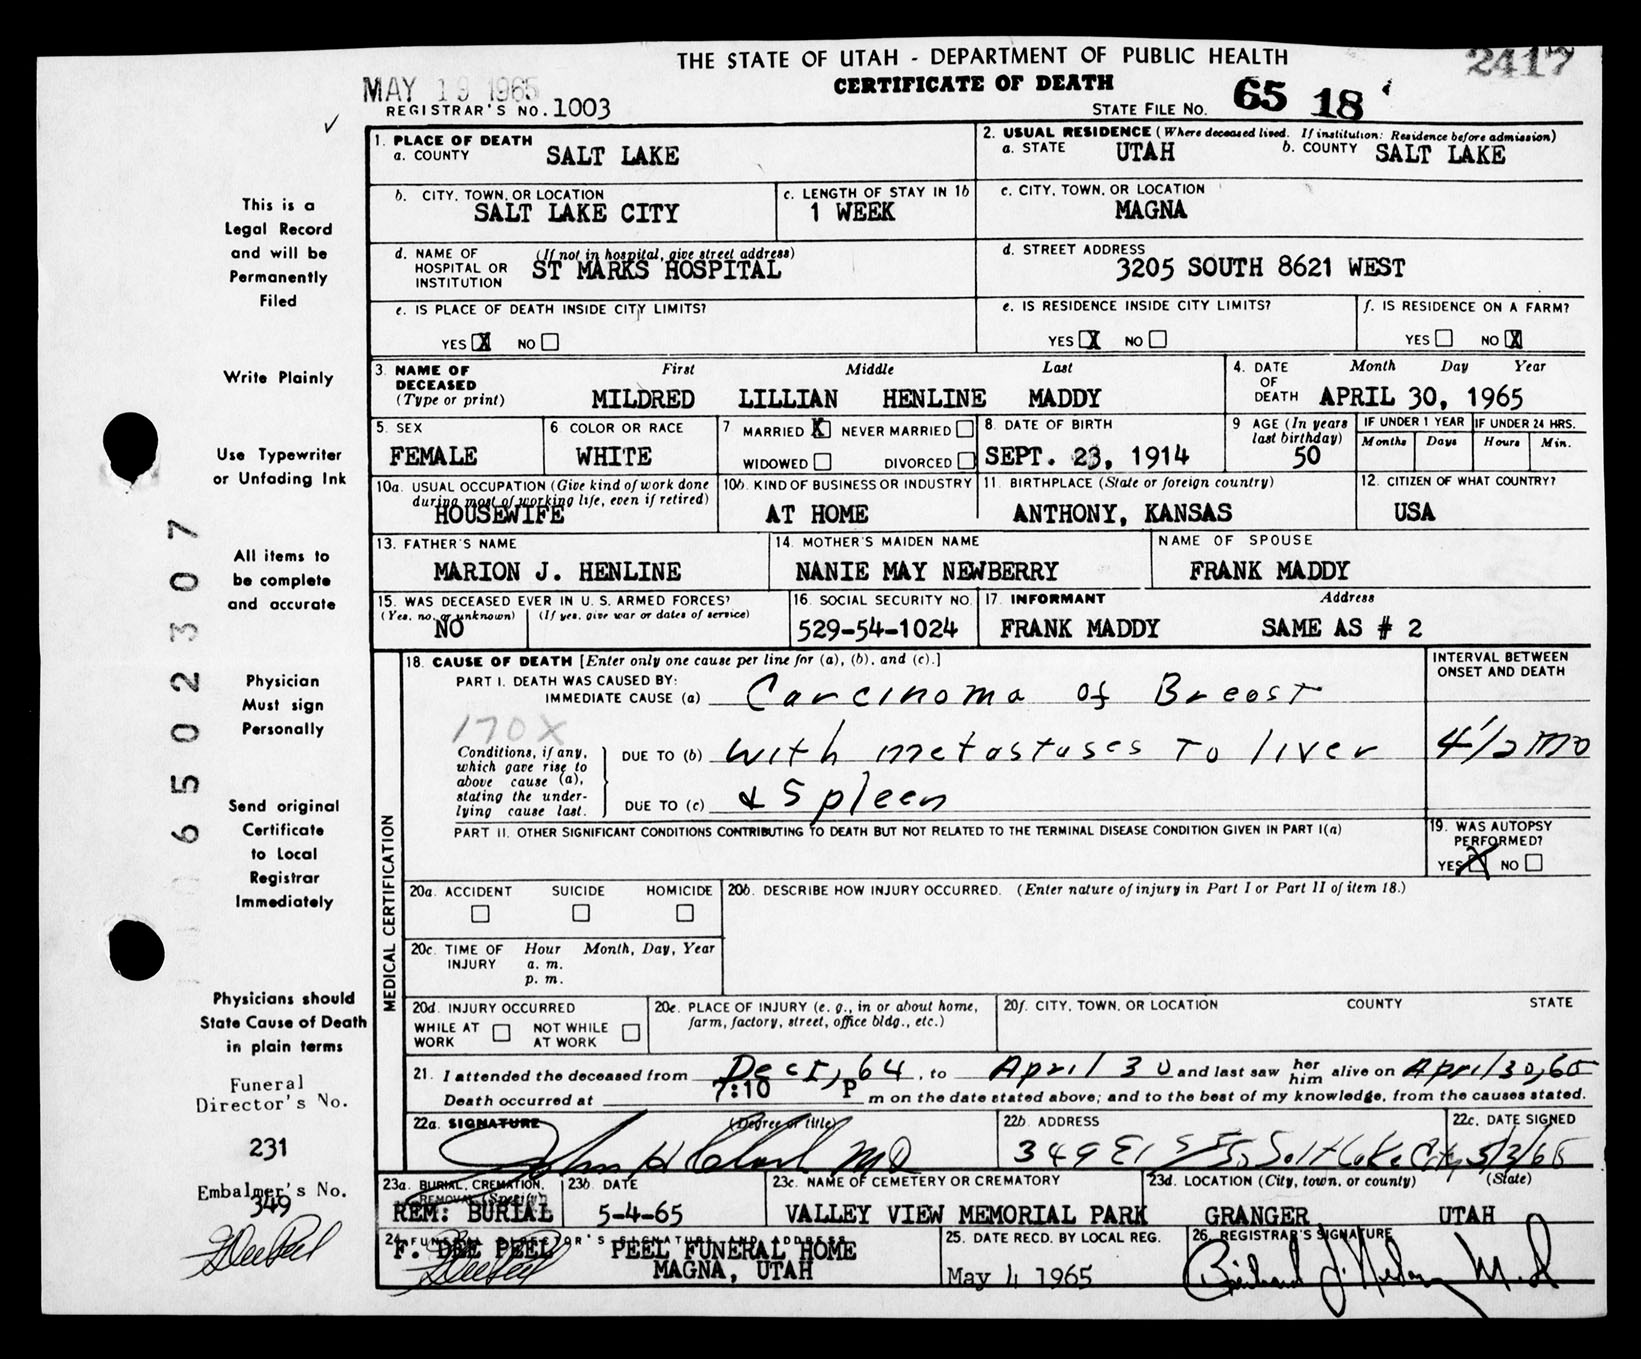 THE STATE OF UTAH - DEPARTMENT OF PUBLIC HEALTH
CERTIFICATE OF DEATH
2417
MAY 19 1965
REGISTRAR'S NO. 1003
STATE FILE NO. 65 18
1. PLACE OF DEATH
a. COUNTY SALT LAKE
2. USUAL RESIDENCE (Where deceased lived. If institution: Residence before admission)
a. STATE UTAH b. COUNTY SALT LAKE
b. CITY, TOWN, OR LOCATION
SALT LAKE CITY
c. LENGTH OF STAY IN 1b
1 WEEK
c. CITY, TOWN, OR LOCATION
MAGNA
d. NAME OF HOSPITAL OR INSTITUTION (If not in hospital, give street address)
ST MARKS HOSPITAL
d. STREET ADDRESS
3205 SOUTH 8621 WEST
e. IS PLACE OF DEATH INSIDE CITY LIMITS?
YES X NO
e. IS RESIDENCE INSIDE CITY LIMITS?
YES X NO
f. IS RESIDENCE ON A FARM?
YES NO X
3. NAME OF DECEASED (Type or print)
First Middle Last
MILDRED LILLIAN HENLINE MADDY
4. DATE OF DEATH Month Day Year
APRIL 30, 1965
5. SEX
FEMALE
6. COLOR OR RACE
WHITE
7 MARRIED X NEVER MARRIED
WIDOWED DIVORCED
8. DATE OF BIRTH
SEPT. 23, 1914
9 AGE (In years last birthday)
50
IF UNDER 1 YEAR
Months Days
IF UNDER 24 HRS.
Hours Min.
10a. USUAL OCCUPATION (Give kind of work done during most of working life, even if retired)
HOUSEWIFE
10b. KIND OF BUSINESS OR INDUSTRY
AT HOME
11. BIRTHPLACE (State or foreign country)
ANTHONY, KANSAS
12. CITIZEN OF WHAT COUNTRY?
USA
13. FATHER'S NAME
MARION J. HENLINE
14. MOTHER'S MAIDEN NAME
NANIE MAY NEWBERRY
NAME OF SPOUSE
FRANK MADDY
15. WAS DECEASED EVER IN U.S. ARMED FORCES?
(Yes, no, or unknown) (If yes, give war or dates of service)
NO
16. SOCIAL SECURITY NO.
529-54-1024
17. INFORMANT Address
FRANK MADDY SAME AS # 2
MEDICAL CERTIFICATION
18. CAUSE OF DEATH [Enter only one cause per line for (a), (b), and (c).]
INTERVAL BETWEEN ONSET AND DEATH
PART I. DEATH WAS CAUSED BY:
IMMEDIATE CAUSE (a) Carcinoma of Breast
170X
Conditions, if any, which gave rise to above cause (a), stating the underlying cause last.
DUE TO (b) with metastases to liver
4 1/2 mo
DUE TO (c) & Spleen
PART II. OTHER SIGNIFICANT CONDITIONS CONTRIBUTING TO DEATH BUT NOT RELATED TO THE TERMINAL DISEASE CONDITION GIVEN IN PART I(a)
19. WAS AUTOPSY PERFORMED?
YES X NO
20a. ACCIDENT SUICIDE HOMICIDE
20b. DESCRIBE HOW INJURY OCCURRED. (Enter nature of injury in Part I or Part II of item 18.)
20c. TIME OF INJURY Hour Month, Day, Year
a. m.
p. m.
20d. INJURY OCCURRED
WHILE AT WORK NOT WHILE AT WORK
20e. PLACE OF INJURY (e. g., in or about home, farm, factory, street, office bldg., etc.)
20f. CITY, TOWN, OR LOCATION COUNTY STATE
21. I attended the deceased from Dec 1, 64, to April 30 and last saw her him alive on April 30, 65
Death occurred at 7:10 P m on the date stated above; and to the best of my knowledge, from the causes stated.
22a. SIGNATURE (Degree or title)
John H Clark MD
22b. ADDRESS
349 E Salt Lake City
22c. DATE SIGNED
5/3/65
23a. BURIAL, CREMATION, REMOVAL (Specify)
REM: BURIAL
23b. DATE
5-4-65
23c. NAME OF CEMETERY OR CREMATORY
VALLEY VIEW MEMORIAL PARK
23d. LOCATION (City, town, or county) (State)
GRANGER UTAH
24. FUNERAL DIRECTOR'S SIGNATURE AND ADDRESS
F. DEE PEEL PEEL FUNERAL HOME
MAGNA, UTAH
F Dee Peel
25. DATE RECD. BY LOCAL REG.
May 4 1965
26. REGISTRAR'S SIGNATURE
M.D.
This is a
Legal Record
and will be
Permanently
Filed
Write Plainly
Use Typewriter
or Unfading Ink
All items to
be complete
and accurate
Physician
Must sign
Personally
Send original
Certificate
to Local
Registrar
Immediately
Physicians should
State Cause of Death
in plain terms
Funeral
Director's No.
231
Embalmer's No.
349
F Dee Peel
6502307